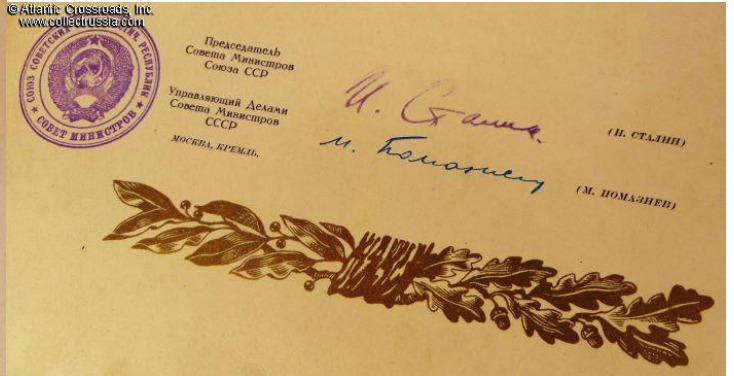 © Atlantic Crossroads, Inc.
www.collectrussia.com
СОЮЗ СОВЕТСКИХ РЕСПУБЛИК
СОВЕТ МИНИСТРОВ
Председатель
Совета Министров
Союза ССР
И. Сталин.
(И. СТАЛИН)
Управляющий Делами
Совета Министров
СССР
М. Помазнев
(М. ПОМАЗНЕВ)
МОСКВА, КРЕМЛЬ,